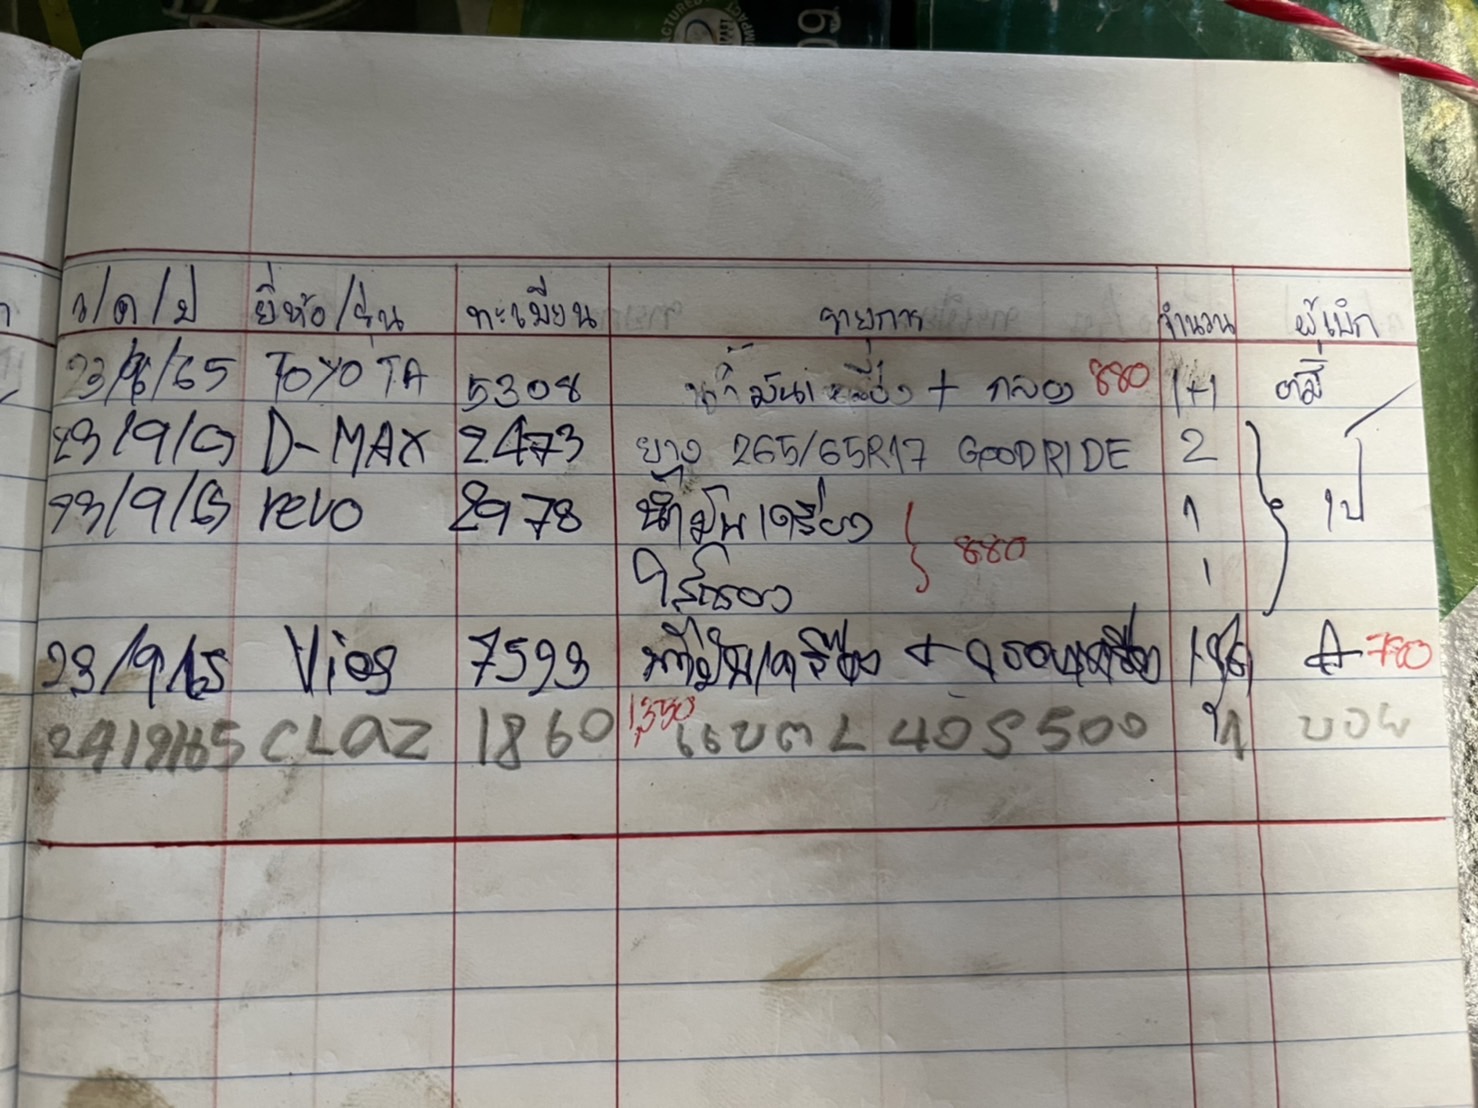 ว/ด/ป ยี่ห้อ/รุ่น ทะเบียน รายการ จำนวน ผู้เบิก
23/9/65 TOYOTA 5308 น้ำมันเครื่อง + กลอง 880 1+1
23/9/65 D-MAX 2473 ยาง 265/65R17 GOODRIDE 2
23/9/65 revo 2978 น้ำมันเครื่อง 1 เป
880
ไส้กรอง 1
23/9/65 Vios 7593 น้ำมันเครื่อง + กรองเครื่อง A 780
24/9/65 CLAZ 1860 1,550 แบต L 40 S 500 1 บอย